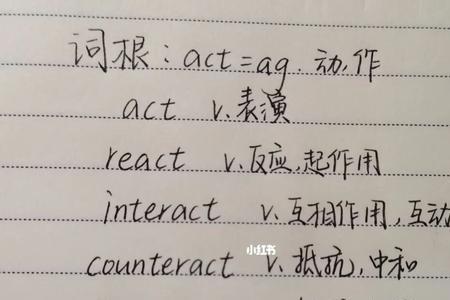 词根：act=ag.动作
act v.表演
react v.反应,起作用
interact v.互相作用,互动
小红书
counteract v.抵抗,中和